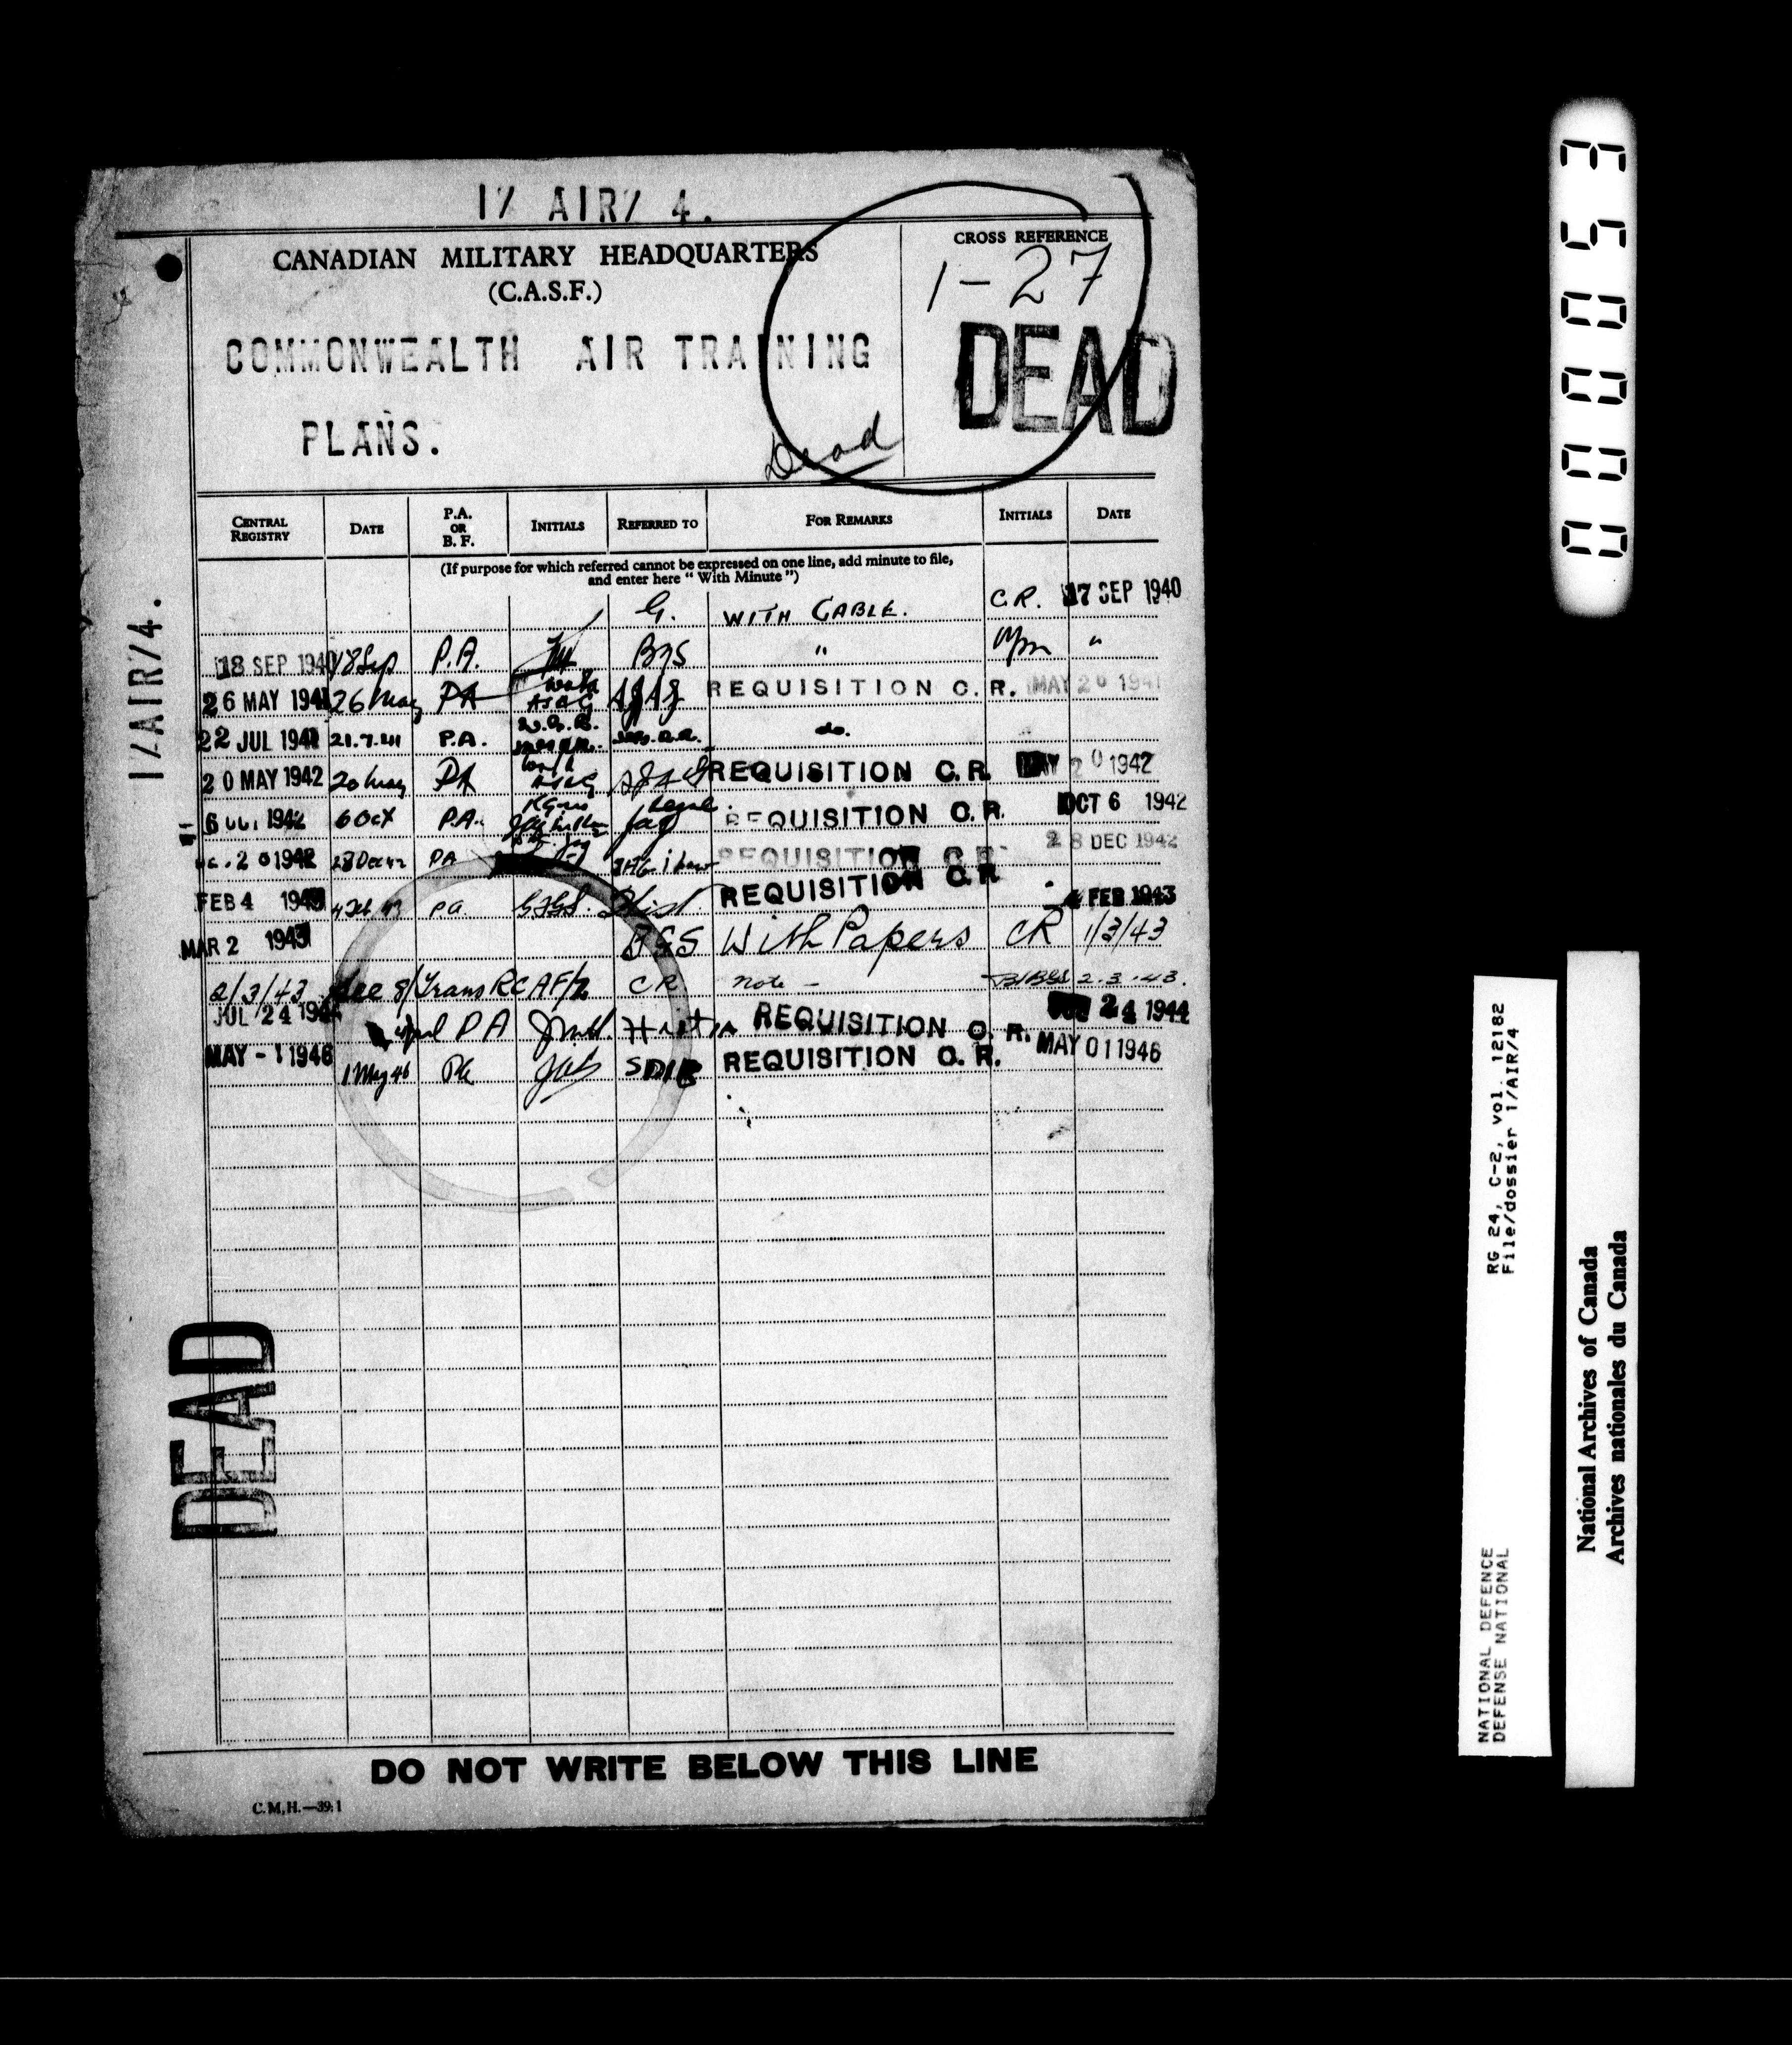 1/ AIR/ 4.
CANADIAN MILITARY HEADQUARTERS
(C.A.S.F.)
COMMONWEALTH AIR TRAINING
PLANS.
Dead
CROSS REFERENCE
1-27
DEAD
CENTRAL REGISTRY DATE P.A. OR B. F. INITIALS REFERRED TO FOR REMARKS INITIALS DATE
(If purpose for which referred cannot be expressed on one line, add minute to file,
and enter here " With Minute ")
G. WITH CABLE. C.R. 17 SEP 1940
18 SEP 1940 18 Sep P.A. " "
26 MAY 1941 26 May PA REQUISITION C. R. MAY 26 1941
22 JUL 1941 21.7.41 P.A. do.
20 MAY 1942 20 May PA REQUISITION C. R. MAY 20 1942
6 OCT 1942 6 Oct P.A. REQUISITION C. R. OCT 6 1942
1942 28 Dec 42 PA REQUISITION C. R. 28 DEC 1942
FEB 4 1943 4 Feb 43 P.A. REQUISITION C. R. 4 FEB 1943
MAR 2 1943 BGS With Papers CR 1/3/43
2/3/43 See 8/Trans RCAF/2 C.R. note — 2.3.43.
JUL 24 1944 PA REQUISITION C. R. 24 1944
MAY - 1 1946 1 May 46 PA REQUISITION C. R. MAY 01 1946
DO NOT WRITE BELOW THIS LINE
C.M.H.—39/1
1/AIR/4.
DEAD
000053
RG 24, C-2, vol. 12182
File/dossier 1/AIR/4
NATIONAL DEFENCE
DEFENSE NATIONAL
National Archives of Canada
Archives nationales du Canada